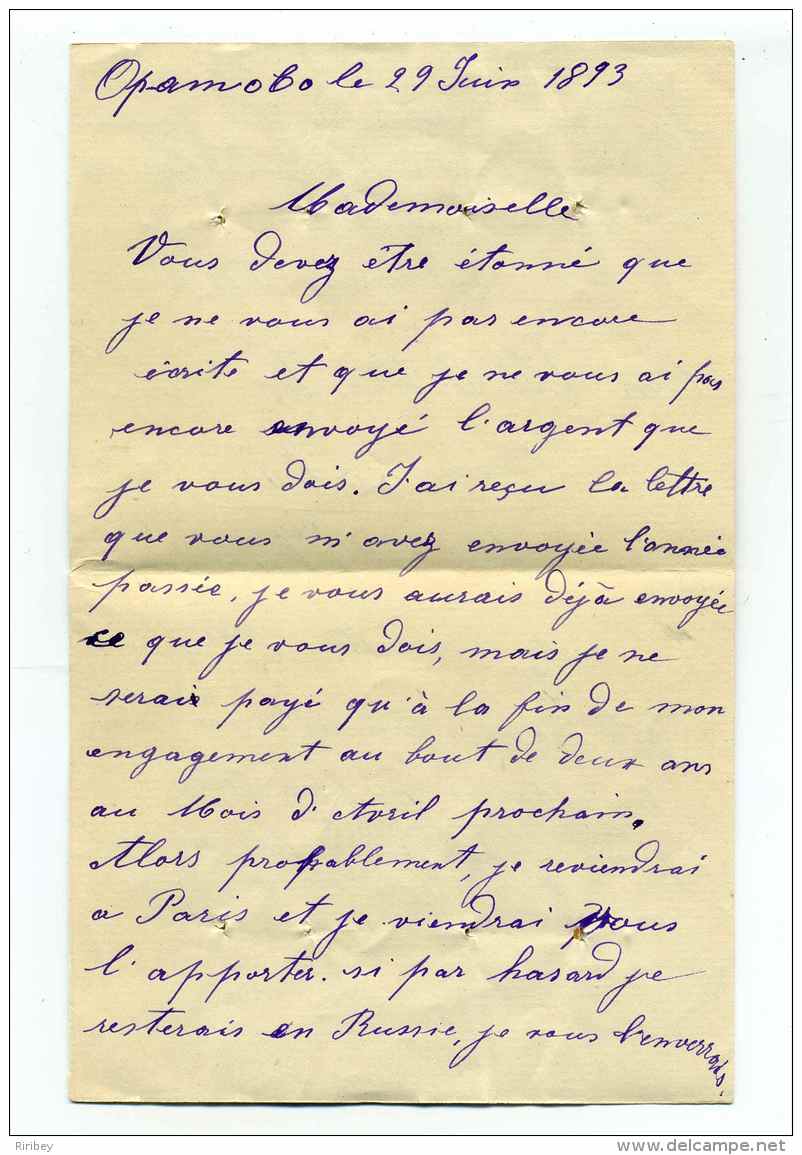 Opamobo le 29 Juin 1893
Mademoiselle
Vous devez être étonné que
je ne vous ai pas encore
écrite et que je ne vous ai pas
encore envoyé l'argent que
je vous dois. J'ai reçu la lettre
que vous m'avez envoyée l'année
passée, je vous aurais déjà envoyée
ce que je vous dois, mais je ne
serais payé qu'à la fin de mon
engagement au bout de deux ans
au Mois d'Avril prochain.
Alors probablement, je reviendrai
a Paris et je viendrai vous
l'apporter. si par hasard je
resterais en Russie, je vous l'enverrais.
Riribey
www.delcampe.net